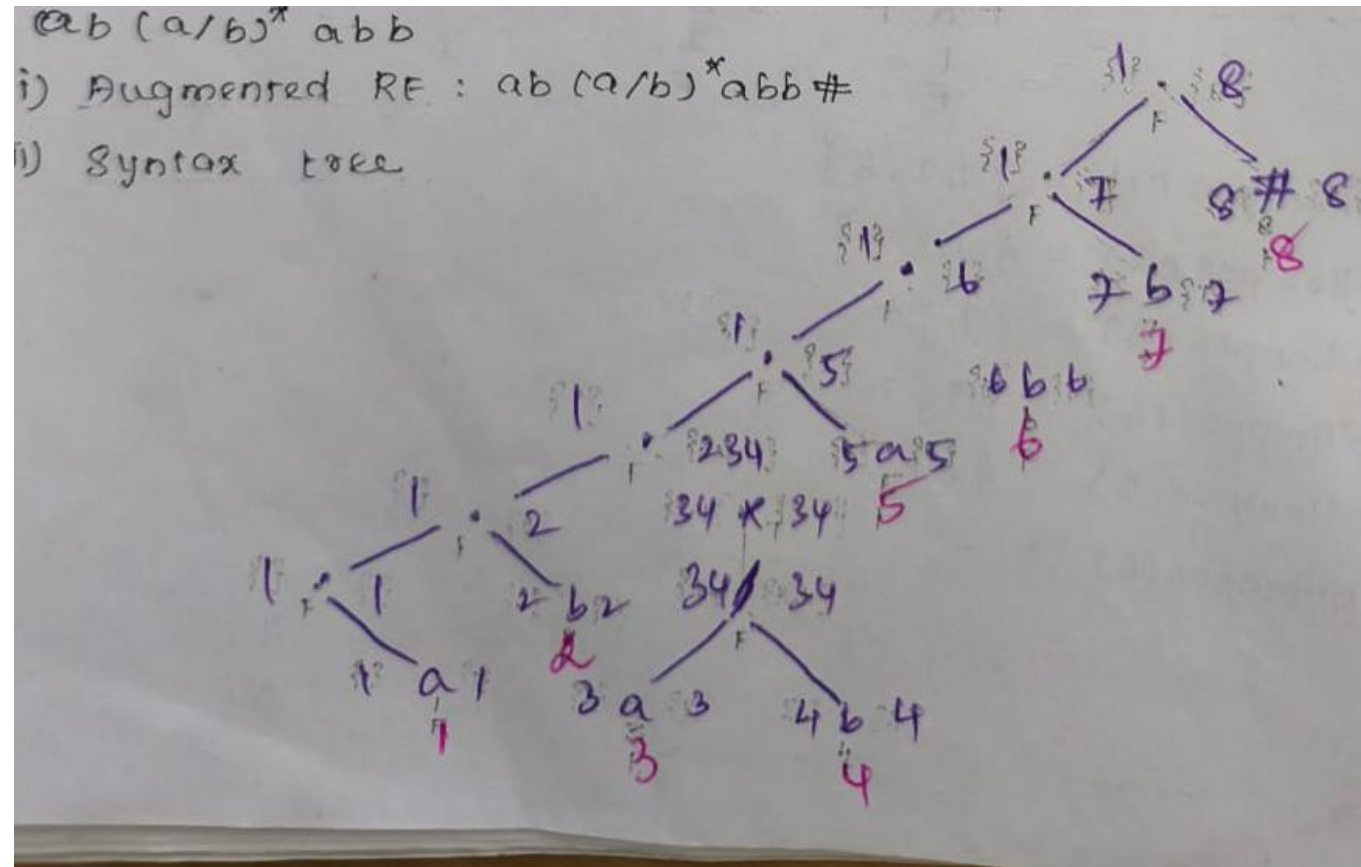 ab (a/b)* abb
i) Augmented RE : ab (a/b)*abb #
ii) Syntax tree
{1} . {8}
F
{1} . {7} 8 # 8
F 8
{1} . {6} 7 b 7
F 7
{1} . {5} 6 b 6
F 6
{1} . {234} 5 a 5
F 5
1 . 2 34 * 34
F
1 . 1 2 b 2 34 / 34
F 2 F
1 a 1 3 a 3 4 b 4
1 3 4